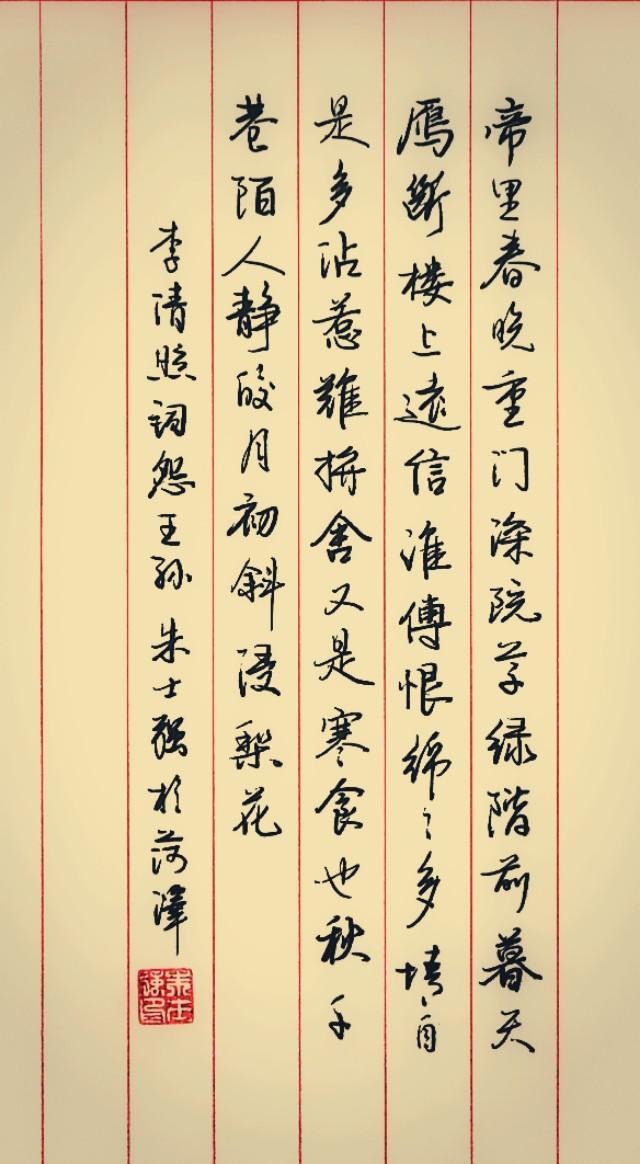 帝里春晚重门深院草绿階前暮天
鴈断楼上遠信谁傳恨绵〻多情自
是多沾惹難拚舍又是寒食也秋千
巷陌人静皎月初斜浸梨花
李清照词怨王孙 朱士强於菏泽
朱士强印